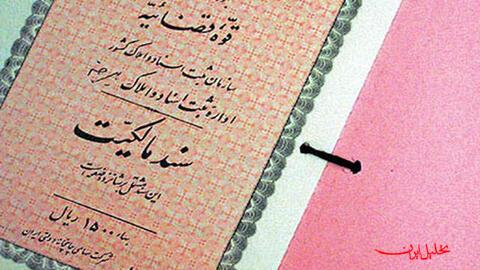 قوۀ قضائیه
سازمان ثبت اسناد و املاک کشور
اداره ثبت اسناد و املاک
سند مالکیت
این سند مشتمل بر شانزده صفحه است
بهاء ۱۵۰۰ ریال
شرکت سهامی چاپخانه دولتی ایران
تحلیل ایران